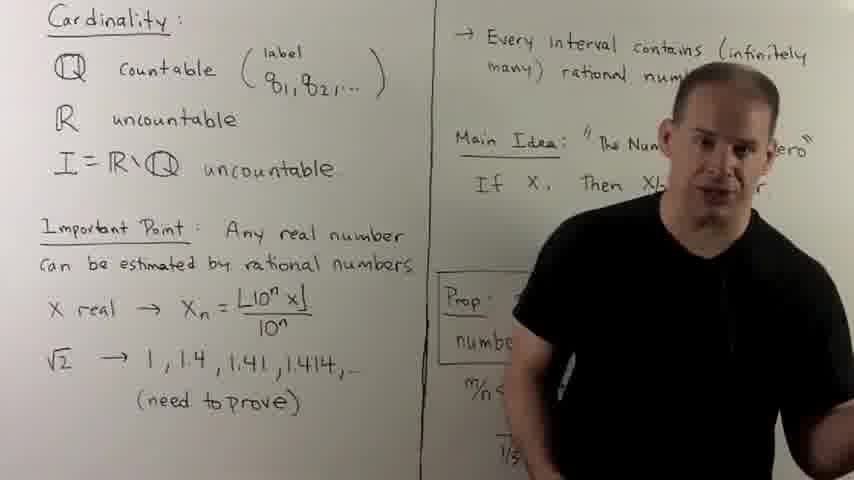 Cardinality:
ℚ countable ( label q₁, q₂, ... )
ℝ uncountable
I = ℝ \ ℚ uncountable
Important Point: Any real number
can be estimated by rational numbers
X real → Xₙ = ⌊10ⁿ x⌋ / 10ⁿ
√2 → 1, 1.4, 1.41, 1.414, ...
(need to prove)
→ Every interval contains (infinitely
many) rational
Main Idea: "The
If X, Then
Prop:
m/n <
1/3